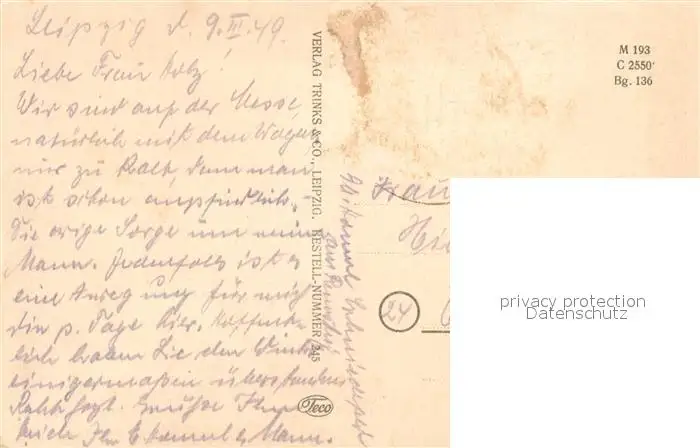 Leipzig d. 9.III.49.
Liebe Frau Holz!
Wir sind auf der Messe,
natürlich mit dem Wagen,
nur zu kalt, denn man
ist schon empfindlich.
Die ewige Sorge um meinen
Mann. Jedenfalls ist es
eine Anregung für mich
die p. Tage hier. Hoffent-
lich haben Sie den Winter
einigermaßen überstanden
Grüße Ihnen
Mann.
VERLAG TRINKS & CO., LEIPZIG. BESTELL-NUMMER 245
Teco
M 193
C 2550
Bg. 136
Frau
24
privacy protection
Datenschutz